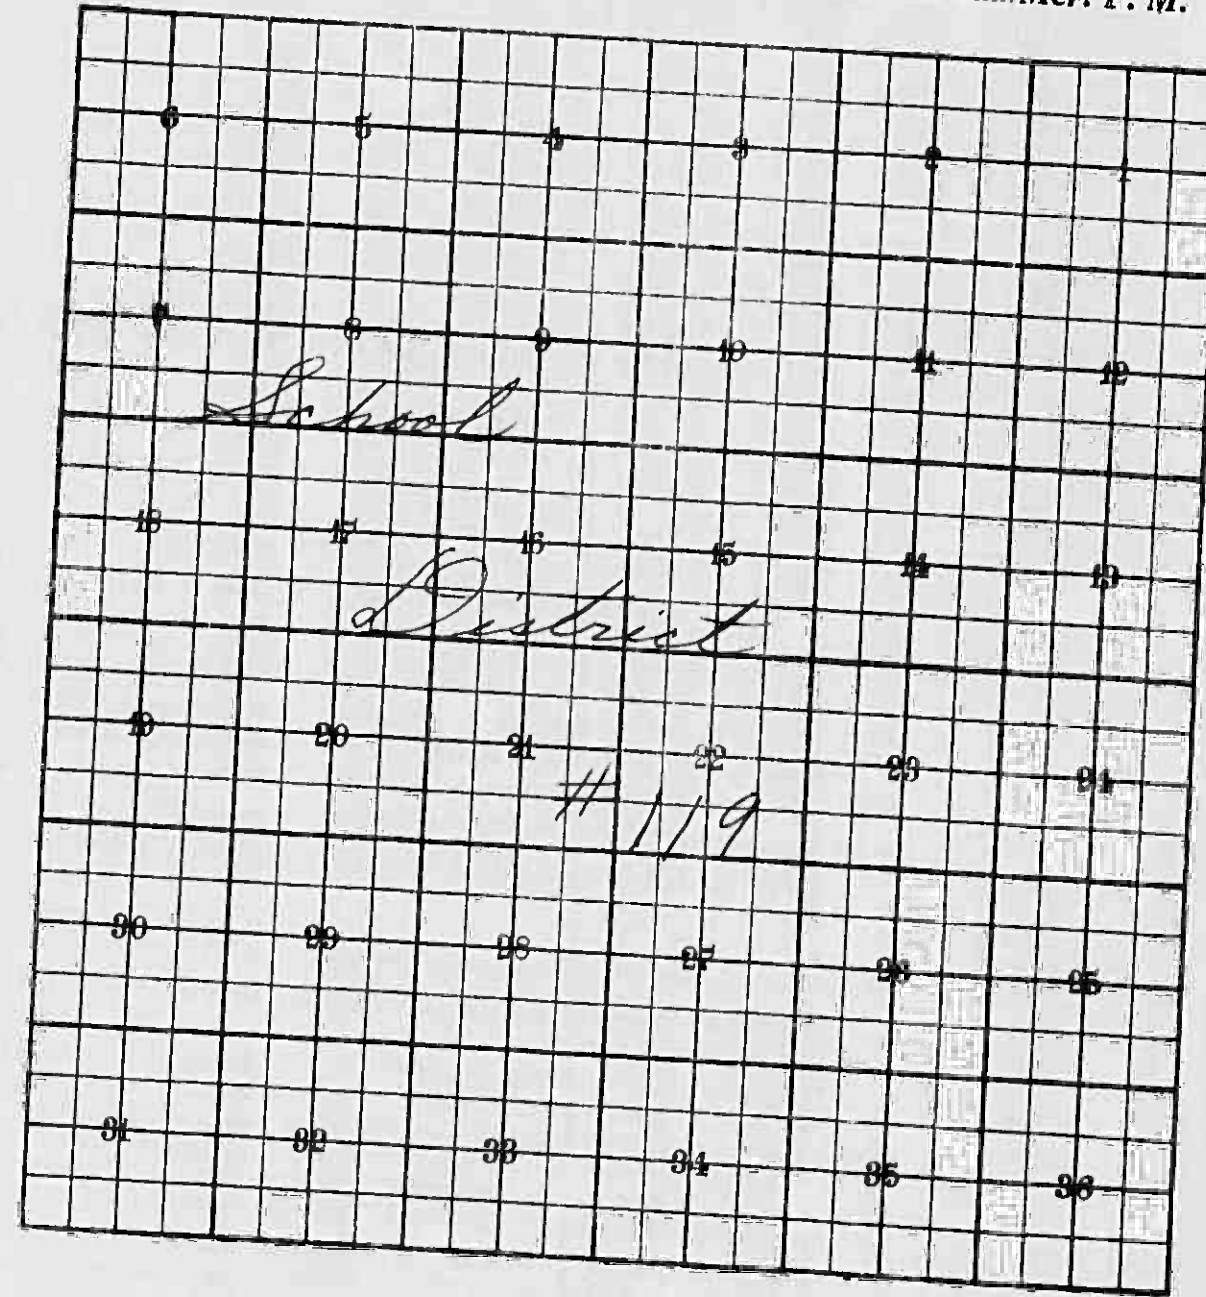 P. M.
6 5 4 3 2 1
7 8 9 10 11 12
School
18 17 16 15 14 13
District
19 20 21 22 23 24
# 119
30 29 28 27 26 25
31 32 33 34 35 36